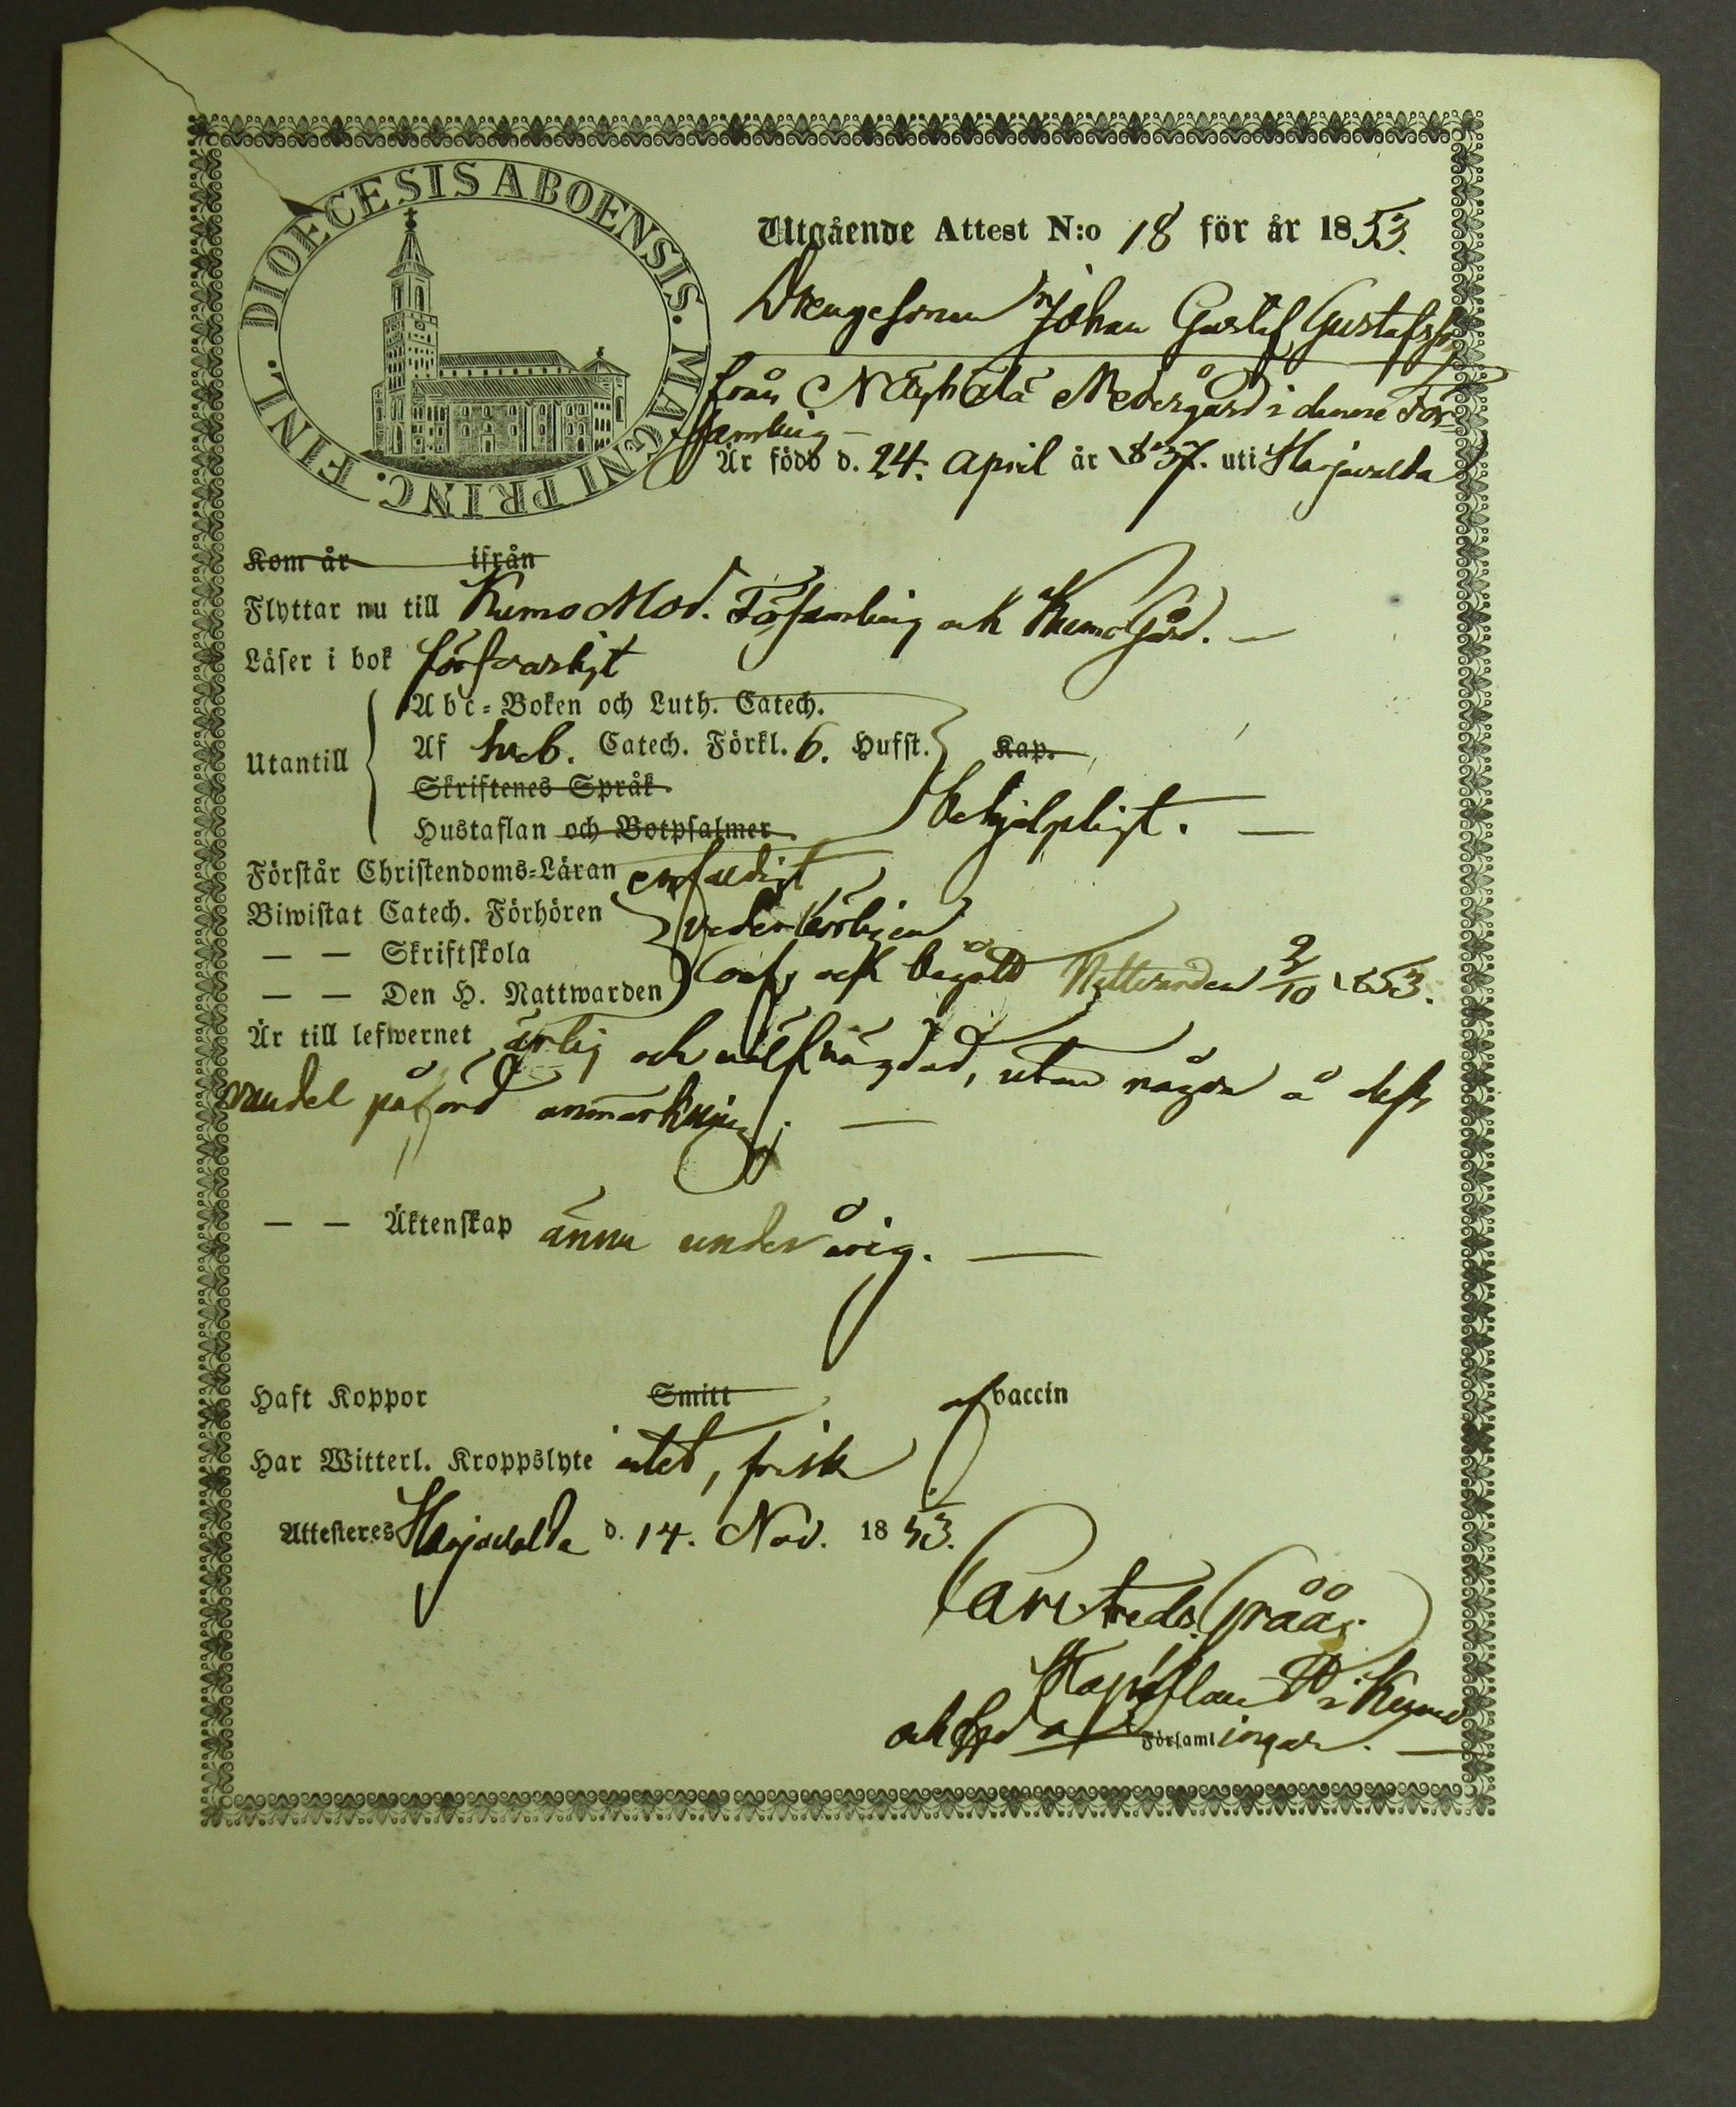 DIOECESIS ABOENSIS. MAGNI PRINC. FINL.
Utgående Attest N:o 18 för år 1853.
Drengesonen Johan Gustaf Gustafss.
från Näyhälä Nedergård i denne För-
samling –
Är född d. 24. April år 1837. uti Harjavalda
Kom år ifrån
Flyttar nu till Kumo Mod. Församling och Kumo Gård. –
Läser i bok försvarligt
Utantill
Abc-Boken och Luth. Catech.
Af Catech. Förkl. 6. Hufst. Kap.
Skriftenes Språk
Hustaflan och Botpsalmer behjelpligt. –
Förstår Christendoms-Läran enfaldigt
Biwistat Catech. Förhören vederbörligen
— — Skriftskola
— — Den H. Nattwarden och begått Nattvarden 2/10 1853.
Är till lefwernet ärlig och välfrägdad, utan någon å dess
vandel påförd anmärkning. –
— — Äktenskap ännu underårig. –
Haft Koppor Smitt af vaccin
Har Witterl. Kroppslyte intet, frisk.
Attesteras Harjavalda d. 14. Nov. 1853.
Carl Fredr. Gråå
Kapellan i Kumo
och Församlingar. –